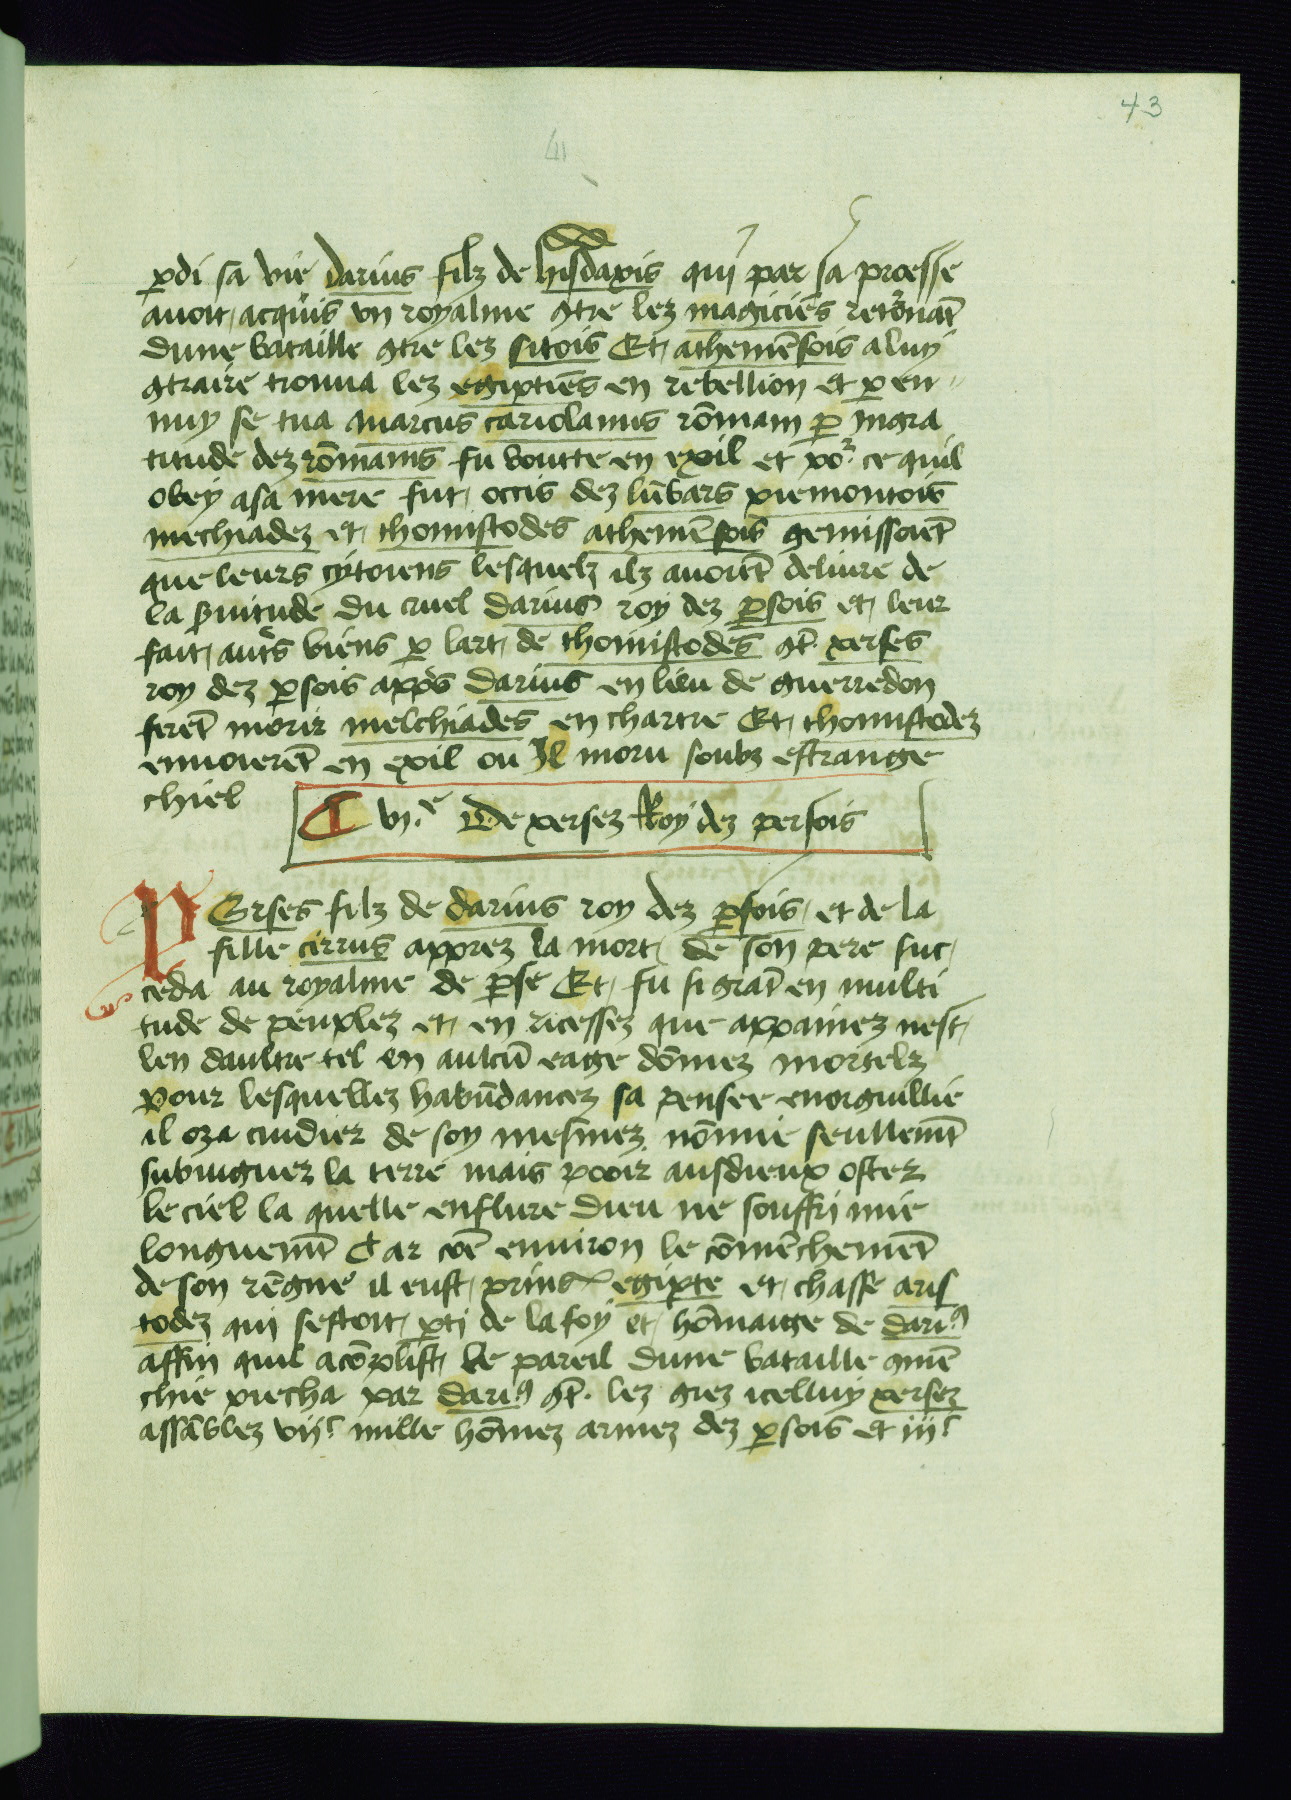 43
ꝑdi sa vie darius filz de hisdaxis qui par sa proesse
auoit acquis vn royalme ꝯtre lez magiciēs retornāt
dune bataille ꝯtre lez sitois Et atheniēsois a luy
ꝯtraire trouua lez egiptiēs en rebellion et ꝑ en
nuy se tua marcus cariolanus rōmain ꝑ ingra
titude dez rōmains fu boutte en exil et po⁹ ce quil
obey asa mere fut occis dez lūbars piemontois
mechiadez et thomistodes atheniēsois gemissoiēt
que leurs cytoiens lesquelz ilz auoiēt deliure de
la ꝑuitude du cruel darius roy dez ꝑsois et leur
fait aut̄s biens ꝑ lart de thomistodes ꝯt̄ xerses
roy dez ꝑsois appꝭs darius en lieu de guerredon
firēt morir melchiades en chartre Et thomistodez
enuoierēt en exil ou Jl moru soubz estrange
chiel
¶ vj.e De xersez Roy dez persois
Erses filz de darius roy dez ꝑsois et de la
fille cirrus apprez la mort de son pere suc
ceda au royalme de ꝑse Et fu si grāt en multi
tude de peuplez et en ricessez que appainez nest
len daultre tel en aulcū eage dōmez mortelz
pour lesquellez habūdancez sa pensee enorguillie
il oza cuidier de soy mesmez nōmie seullemt̄
subiuguer la terre mais pooir ausdieux oster
le ciel la quelle enflure dieu ne souffri mie
longuemt̄ Car cōe enuiron le cōmēchemēt
de son rēgne il eust prins egipte et chasse aris
todez qui sestoit ꝑti de la foy et hōmaige de dariꝰ
affin quil acōplist le pareil dune bataille ꝯmē
chie piecha par dariꝰ ꝯt̄ lez grez icelluy xersez
assāblez vijc mille hōmez armez dez ꝑsois et iijc